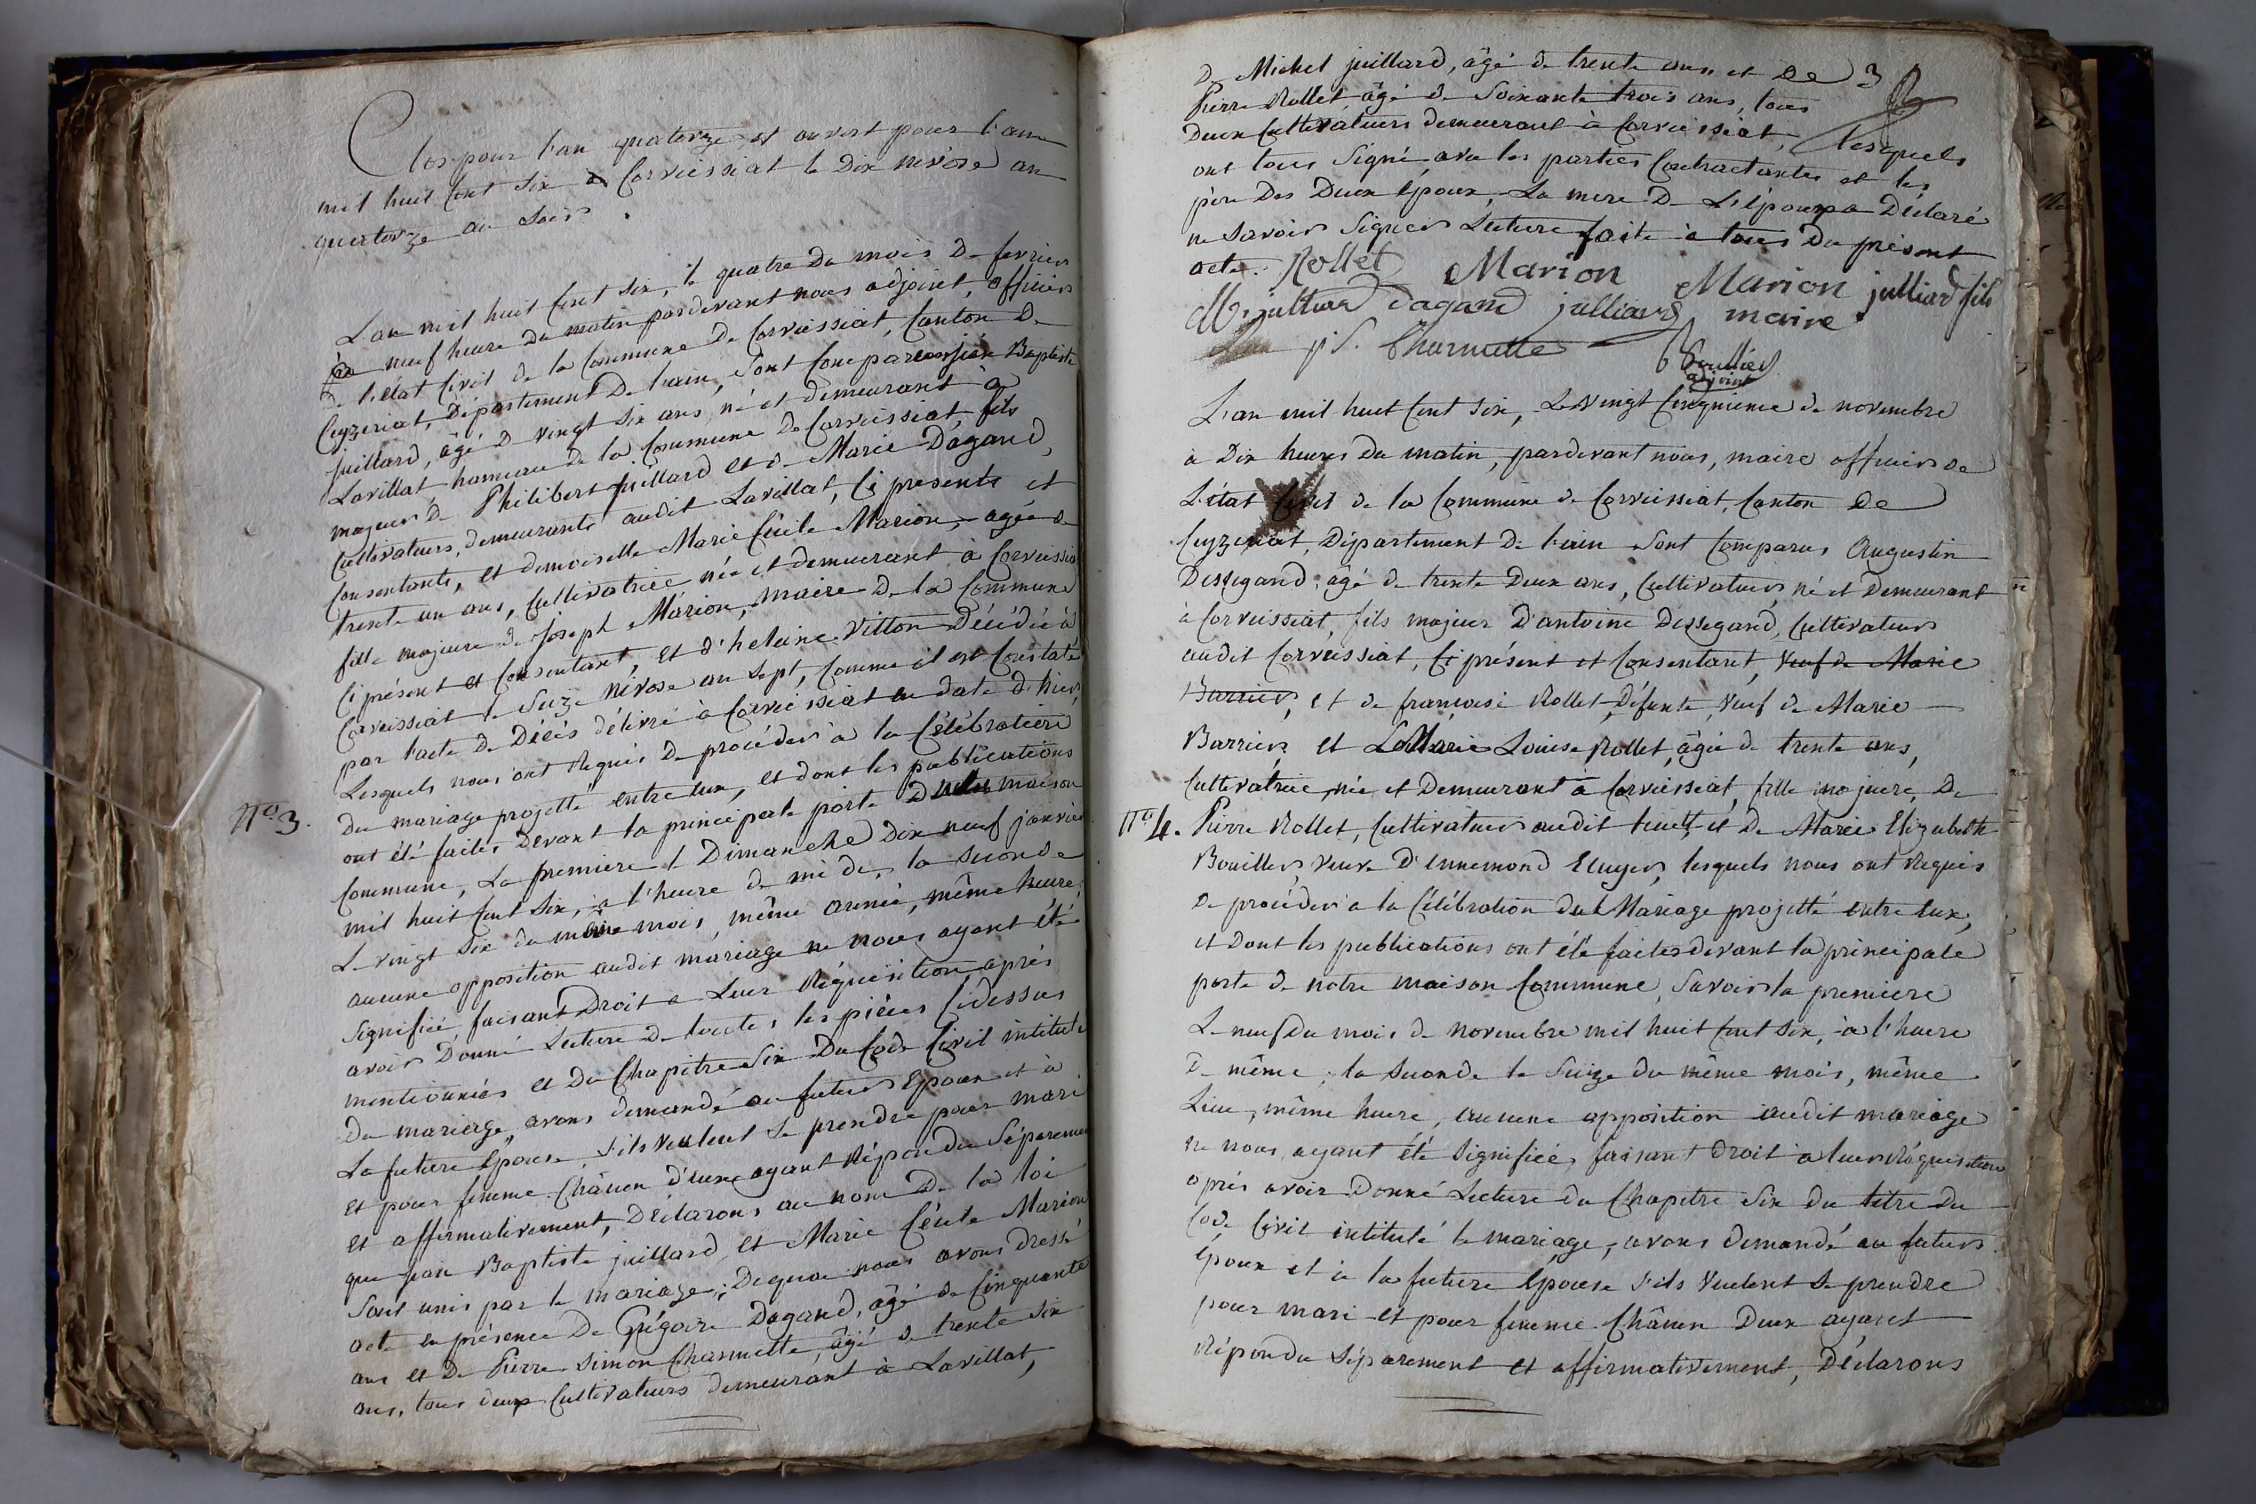 Clos pour l'an quatorze et ouvert pour l'an
mil huit Cent Six a Corveissiat le Dix nivôse an
quatorze au Soir.
L'an mil huit Cent Six, le quatre du mois De fevrier
à neuf heure du matin pardevant nous adjoint, officier
de l'état Civil de la Commune de Corveissiat, Canton De
Ceyzeriat, Département De l'ain, Sont Comparus jean Baptiste
juillard, âgé De vingt Six ans, né et demeurant à
Lavillat, hameau de la Commune de Corveissiat, fils
majeur de Philibert juillard et de Marie Dagand,
Cultivateurs, demeurants audit Lavillat, Ci presents et
Consentants, et demoiselle Marie Cécile Marion, agée de
trente un ans, Cultivatrice née et demeurant à Corveissiat
fille majeure de Joseph Marion, maire De la Commune
Ci présent et Consentant, et d'helaine Vitton Décédée à
Corveissiat le Seize nivose an Sept, Comme il est Constaté
par l'acte De Décès délivré à Corveissiat en date d'hier,
Lesquels nous ont Requis De procéder à la Célébration
Nº 3.
Du mariage projetté entre eux, et dont les publications
ont été faites Devant la principale porte De la maison
Commune, La premiere le Dimanche Dix neuf janvier
mil huit Cent Six, à l'heure de midi, la Seconde
Le vingt Six du même mois, même année, même heure;
aucune opposition audit mariage ne nous ayant été
Signifiée, faisant Droit a Leur Réquisition, après
avoir Donné Lecture De toutes les pièces Cidessus
mentionnées et Du Chapitre Six Du Code Civil intitulé
Du mariage, avons demandé au futur Epoux et à
La future Epouse S'ils veulent Se prendre pour mari
et pour femme. Châcun d'eux ayant Répondu Séparement
et affirmativement, Déclarons au nom De la loi
que jean Baptiste juillard et Marie Cécile Marion
Sont unis par le mariage; Dequoi nous avons dressé
acte en présence De Grégoire Dagand, âgé de Cinquante
ans et De Pierre Simon Charmette, âgé de trente Six
ans, tous deux Cultivateurs demeurant à Lavillat,
De Michel juillard, âgé de trente ans et De
3
Pierre Rollet âgé de Soixante trois ans, tous
Deux Cultivateurs demeurant à Corveissiat, Lesquels
ont tous Signé avec les parties Contractantes et les
père Des Deux époux, La mere De L'épouse a Déclaré
ne Savoir Signer Lecture faite à tous Du présent
acte. Rollet Marion Marion julliard fils
M. julliard Dagand julliard maire
p S. Charmette
Bouillier
adjoint
L'an mil huit Cent Six, Le Vingt Cinquieme de novembre
à Dix heures Du matin, pardevant nous, maire officier de
L'état Civil de la Commune de Corveissiat, Canton De
Ceyzeriat, Département De l'ain Sont Comparus Augustin
Dessegand, âgé de trente Deux ans, Cultivateur, né et Demeurant
à Corveissiat, fils majeur D'antoine Dessegand, Cultivateur
audit Corveissiat, Ci présent et Consentant, veuf de Marie
Barrier, et de françoise Rollet Défunte, veuf de Marie
Barrier, et Marie Louise Rollet, âgée de trente ans,
Cultivatrice, née et Demeurant à Corveissiat, fille majeure, De
Nº 4.
Pierre Rollet, Cultivateur audit lieu et De Marie Elizabeth
Bouillier, veuve D'ennemond Ecuyer, lesquels nous ont Requis
De procéder a la Célébration du Mariage projetté entre eux,
et Dont les publications ont été faites devant la principale
porte De notre maison Commune, Savoir la premiere
Le neuf du mois de novembre mil huit Cent Six, à l'heure
De même, la Seconde le Seize du même mois, même
Lieu, même heure, aucune opposition audit mariage
ne nous ayant été Signifiée, faisant Droit à leur Réquisition
après avoir Donné Lecture du Chapitre Six du titre du
Code Civil intitulé le mariage, avons demandé au futur
époux et à la future Epouse S'ils veulent Se prendre
pour mari et pour femme. Châcun Deux ayant
Répondu Séparement et affirmativement, Déclarons